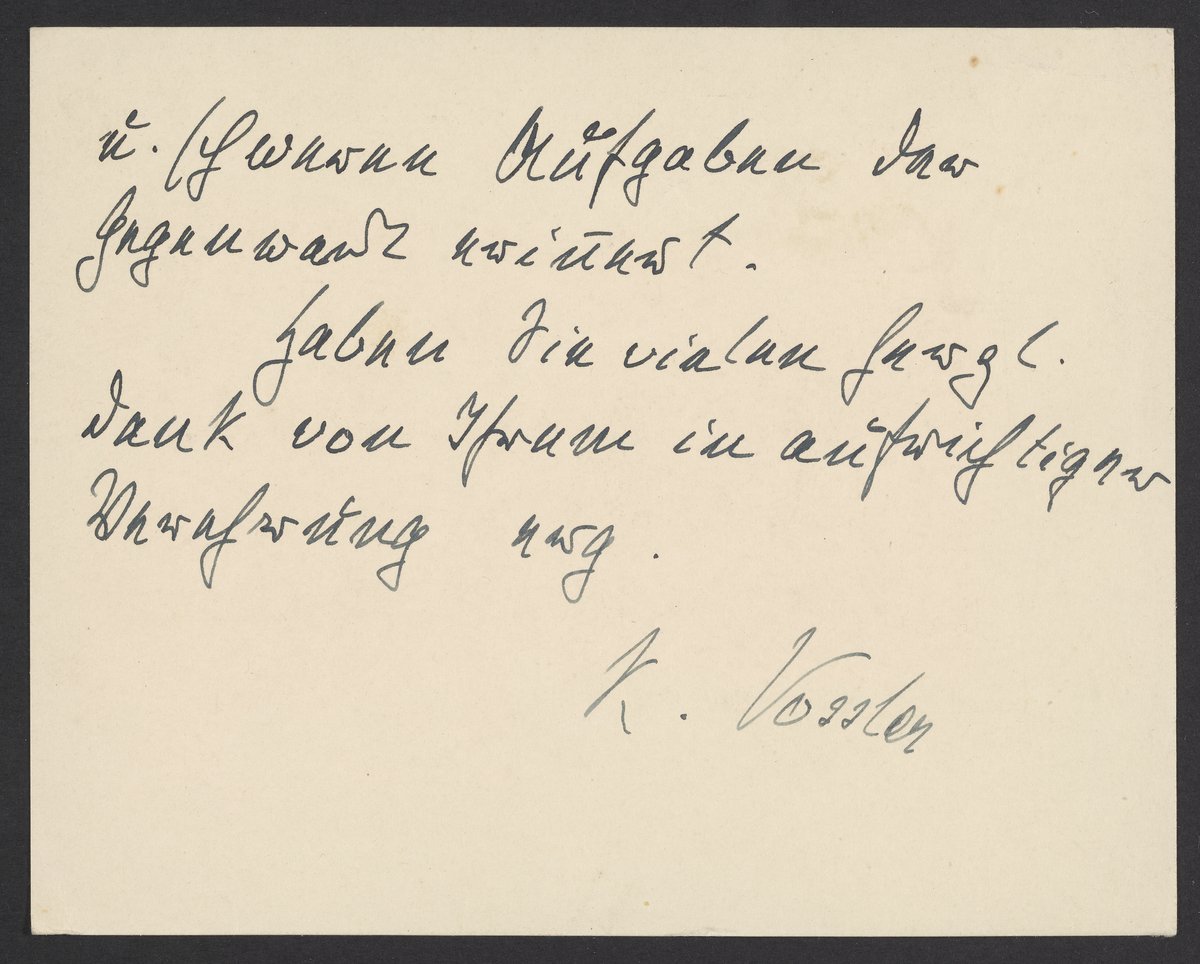 u. schweren Aufgaben der
Gegenwart erin̄ert.
Haben Sie vielen herzl.
Dank von Ihrem in aufrichtiger
Verehrung erg.
K. Vossler